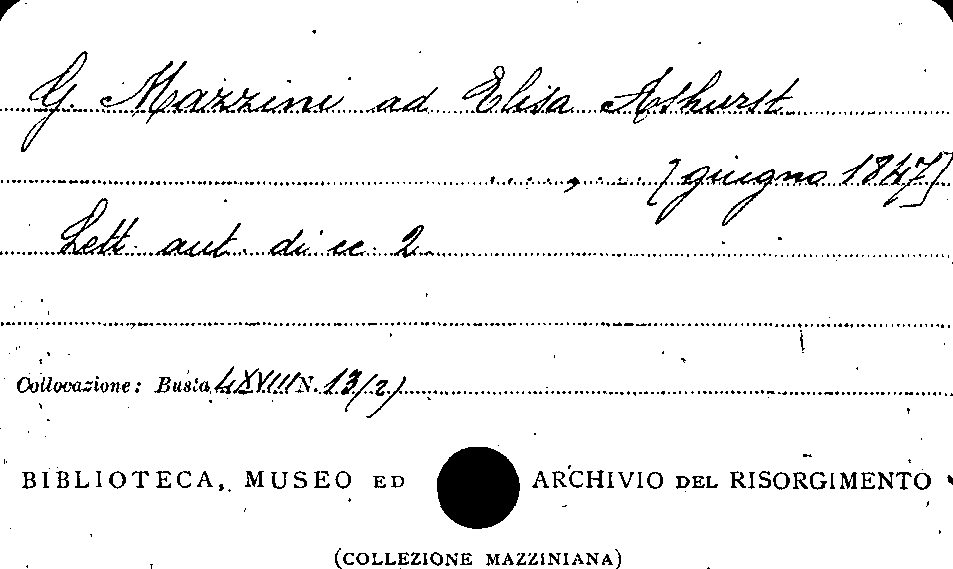 G. Mazzini ad Elisa Ashurst
...., .... [giugno 1847]
Lett. aut. di cc. 2.
Collocazione: Busta LXVIII N. 13/2)
BIBLIOTECA, MUSEO ED ARCHIVIO DEL RISORGIMENTO
(COLLEZIONE MAZZINIANA)